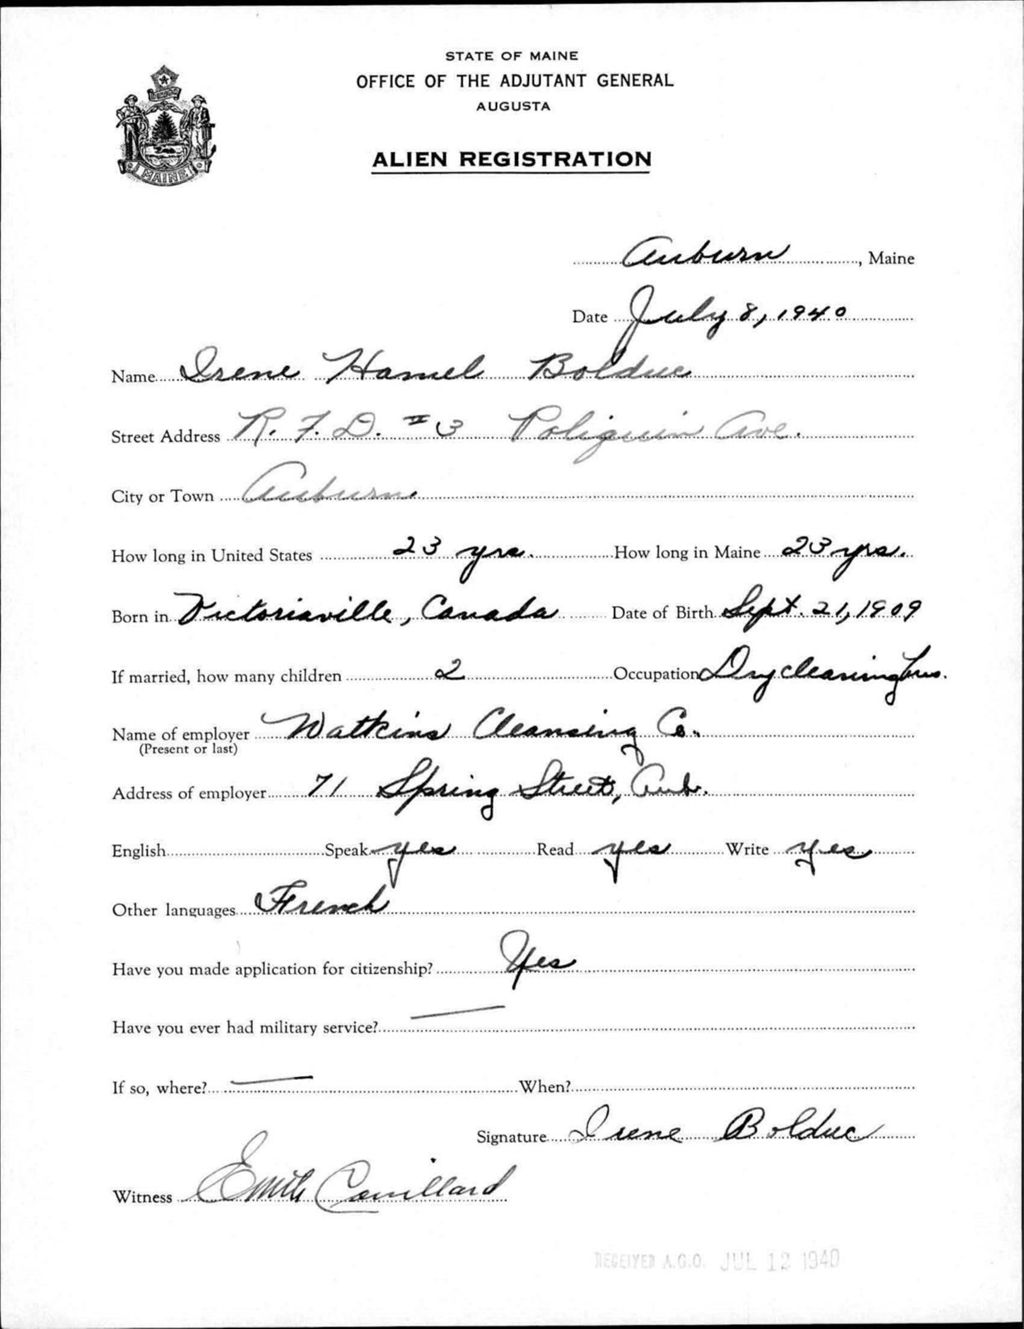 STATE OF MAINE
OFFICE OF THE ADJUTANT GENERAL
AUGUSTA
ALIEN REGISTRATION
MAINE
Auburn, Maine
Date July 8, 1940
Name Irene Hamel Bolduc
Street Address R. F. D. # 3 Poliquin Ave.
City or Town Auburn
How long in United States 23 yrs. How long in Maine 23 yrs.
Born in Victoriaville, Canada Date of Birth Sept. 21, 1909
If married, how many children 2 Occupation Dry cleaning
Name of employer Watkins Cleansing Co.
(Present or last)
Address of employer 71 Spring Street, Aub.
English Speak yes Read yes Write yes
Other languages French
Have you made application for citizenship? Yes
Have you ever had military service? —
If so, where? — When?
Signature Irene Bolduc
Witness
RECEIVED A.G.O. JUL 12 1940